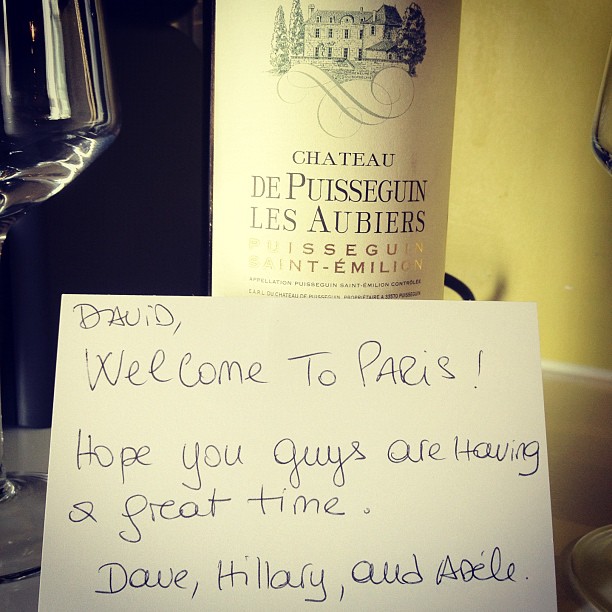 CHATEAU
DE PUISSEGUIN
LES AUBIERS
PUISSEGUIN
SAINT-ÉMILION
APPELLATION PUISSEGUIN SAINT-ÉMILION CONTRÔLÉE
E.A.R.L. DU CHATEAU DE PUISSEGUIN, PROPRIÉTAIRE A 33570 PUISSEGUIN
David,
Welcome To Paris!
Hope you guys are Having
a great time.
Dave, Hillary, and Adèle.